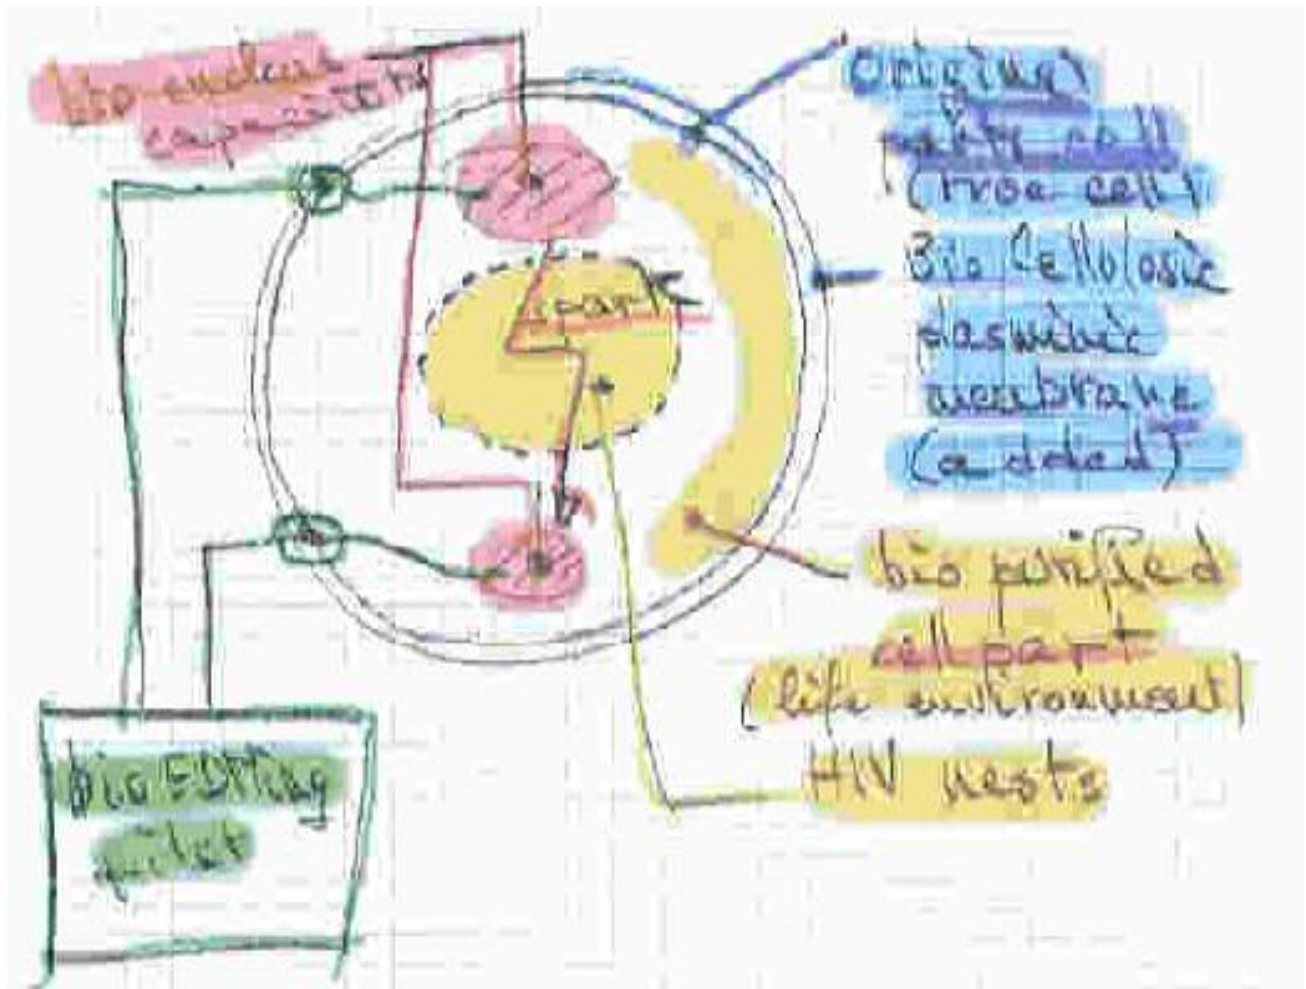 bio
capacitors
spark
Original
cell
(true cell)
Bio Cellulosic
plasminic
membrane
(added)
bio purified
cell part
(life environment)
HIV nests
bio EDMing